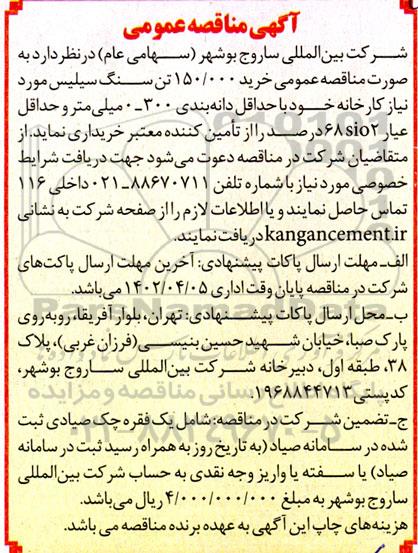 آگهی مناقصه عمومی
شرکت بین‌المللی ساروج بوشهر (سهامی عام) در نظر دارد به
صورت مناقصه عمومی خرید ۱۵۰/۰۰۰ تن سنگ سیلیس مورد
نیاز کارخانه خود با حداقل دانه‌بندی ۳۰۰ ـ ۰ میلی‌متر و حداقل
عیار sio۲ ۶۸ درصد را از تأمین کننده معتبر خریداری نماید. از
متقاضیان شرکت در مناقصه دعوت می‌شود جهت دریافت شرایط
خصوصی مورد نیاز با شماره تلفن ۸۸۶۷۰۷۱۱ ـ ۰۲۱ داخلی ۱۱۶
تماس حاصل نمایند و یا اطلاعات لازم را از صفحه شرکت به نشانی
kangancement.ir دریافت نمایند.
الف ـ مهلت ارسال پاکات پیشنهادی: آخرین مهلت ارسال پاکت‌های
شرکت در مناقصه پایان وقت اداری ۱۴۰۲/۰۴/۰۵ می‌باشد.
ب ـ محل ارسال پاکات پیشنهادی: تهران، بلوار آفریقا، روبه‌روی
پارک صبا، خیابان شهید حسین بنیسی (فرزان غربی)، پلاک
۳۸، طبقه اول، دبیرخانه شرکت بین‌المللی ساروج بوشهر،
کدپستی ۱۹۶۸۸۴۴۷۱۳.
ج ـ تضمین شرکت در مناقصه: شامل یک فقره چک صیادی ثبت
شده در سامانه صیاد (به تاریخ روز به همراه رسید ثبت در سامانه
صیاد) یا سفته یا واریز وجه نقدی به حساب شرکت بین‌المللی
ساروج بوشهر به مبلغ ۴/۰۰۰/۰۰۰/۰۰۰ ریال می‌باشد.
هزینه‌های چاپ این آگهی به عهده برنده مناقصه می باشد.